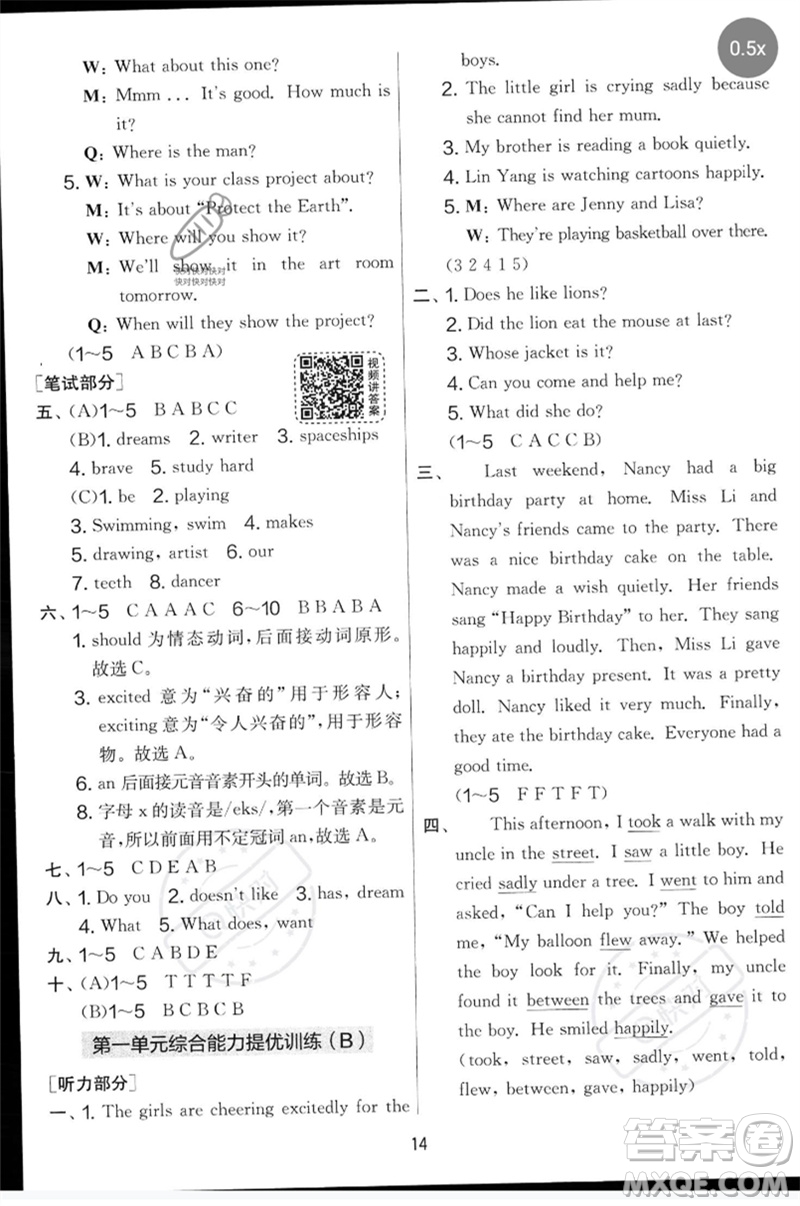 0.5x
W: What about this one?
M: Mmm ... It's good. How much is
it?
Q: Where is the man?
5. W: What is your class project about?
M: It's about "Protect the Earth".
W: Where will you show it?
M: We'll show it in the art room
tomorrow.
Q: When will they show the project?
(1～5 ABCBA)
[笔试部分]
视频讲答案
五、(A)1～5 BABCC
(B)1. dreams 2. writer 3. spaceships
4. brave 5. study hard
(C)1. be 2. playing
3. Swimming, swim 4. makes
5. drawing, artist 6. our
7. teeth 8. dancer
六、1～5 CAAAC 6～10 BBABA
1. should 为情态动词,后面接动词原形。
故选 C。
3. excited 意为“兴奋的”用于形容人;
exciting 意为“令人兴奋的”用于形容
物。故选 A。
6. an 后面接元音音素开头的单词。故选 A。
8. 字母 x 的读音是/eks/,第一个音素是元
音,所以前面用不定冠词 an,故选 B。
七、1～5 CDEAB
八、1. Do you 2. doesn't like 3. has, dream
4. What 5. What does, want
九、1～5 CABDE
十、(A)1～5 TTTTF
(B)1～5 BCBCB
第一单元综合能力提优训练(B)
[听力部分]
一、1. The girls are cheering excitedly for the
boys.
2. The little girl is crying sadly because
she cannot find her mum.
3. My brother is reading a book quietly.
4. Lin Yang is watching cartoons happily.
5. M: Where are Jenny and Lisa?
W: They're playing basketball over there.
(3 2 4 1 5)
二、1. Does he like lions?
2. Did the lion eat the mouse at last?
3. Whose jacket is it?
4. Can you come and help me?
5. What did she do?
(1～5 CACCB)
三、 Last weekend, Nancy had a big
birthday party at home. Miss Li and
Nancy's friends came to the party. There
was a nice birthday cake on the table.
Nancy made a wish quietly. Her friends
sang "Happy Birthday" to her. They sang
happily and loudly. Then, Miss Li gave
Nancy a birthday present. It was a pretty
doll. Nancy liked it very much. Finally,
they ate the birthday cake. Everyone had a
good time.
(1～5 FFTFT)
四、 This afternoon, I took a walk with my
uncle in the street. I saw a little boy. He
cried sadly under a tree. I went to him and
asked, "Can I help you?" The boy told
me, "My balloon flew away." We helped
the boy look for it. Finally, my uncle
found it between the trees and gave it to
the boy. He smiled happily.
(took, street, saw, sadly, went, told,
flew, between, gave, happily)
14
答案圈
MXQE.COM